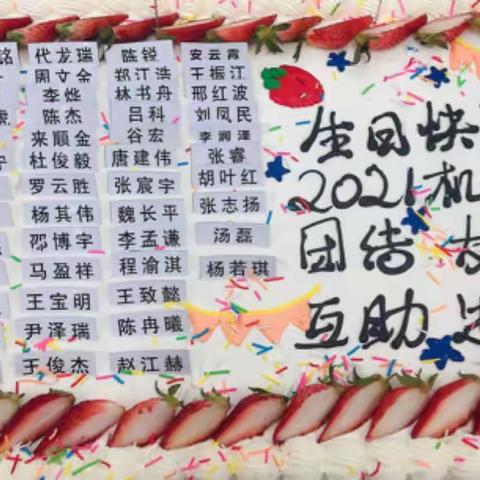 代龙瑞
周文金
李烨
陈杰
来顺金
杜俊毅
罗云胜
杨其伟
邵博宇
马盈祥
王宝明
尹泽瑞
王俊杰
陈锐
郑江浩
林书舟
吕科
谷宏
唐建伟
张宸宇
魏长平
李孟谦
程渝淇
王致懿
陈冉曦
赵江赫
安云霄
王振江
邢红波
刘凤民
李润泽
张睿
胡叶红
张志扬
汤磊
杨若琪
生日快
2021机
团结友
互助